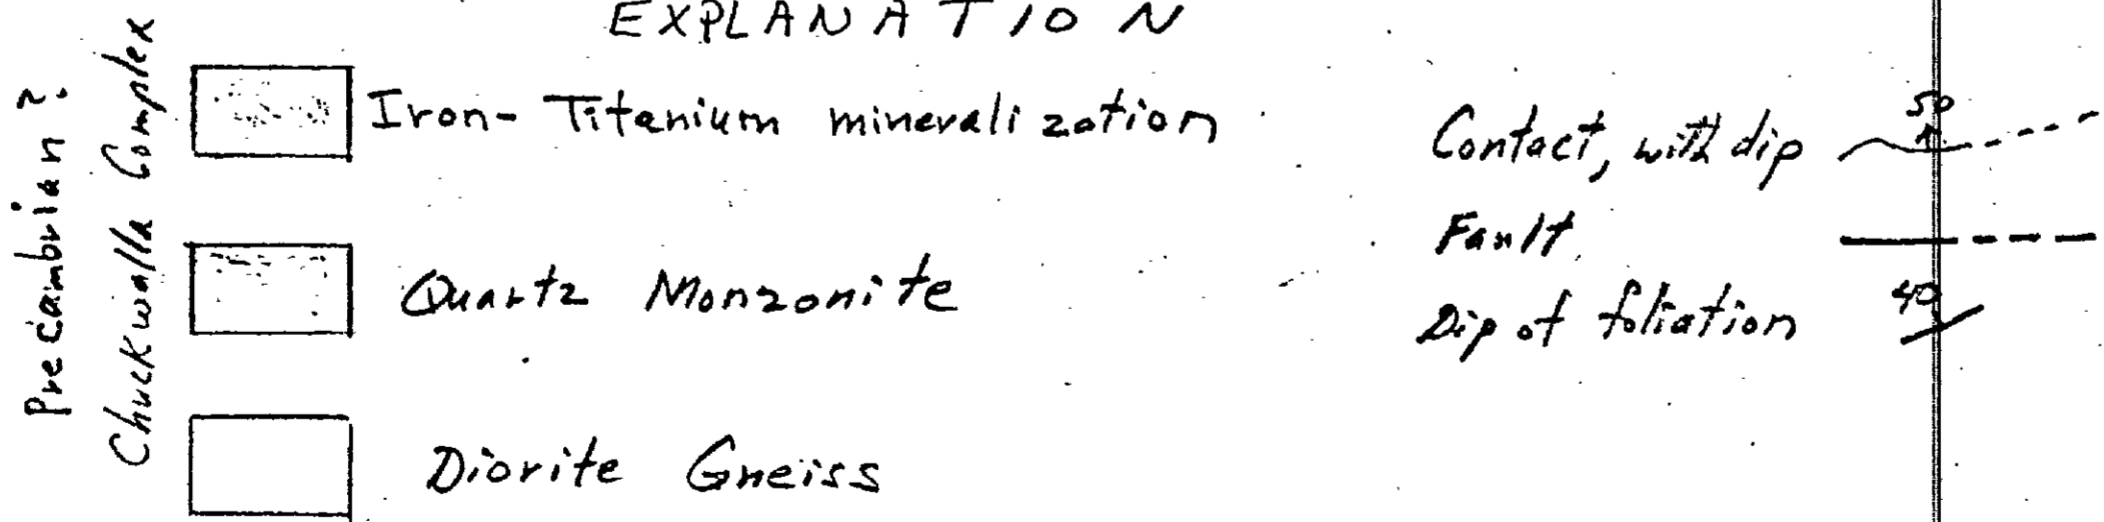 EXPLANATION
Precambrian?
Chuckwalla Complex
Iron-Titanium mineralization
Quartz Monzonite
Diorite Gneiss
Contact, with dip
50
Fault
Dip of foliation
40